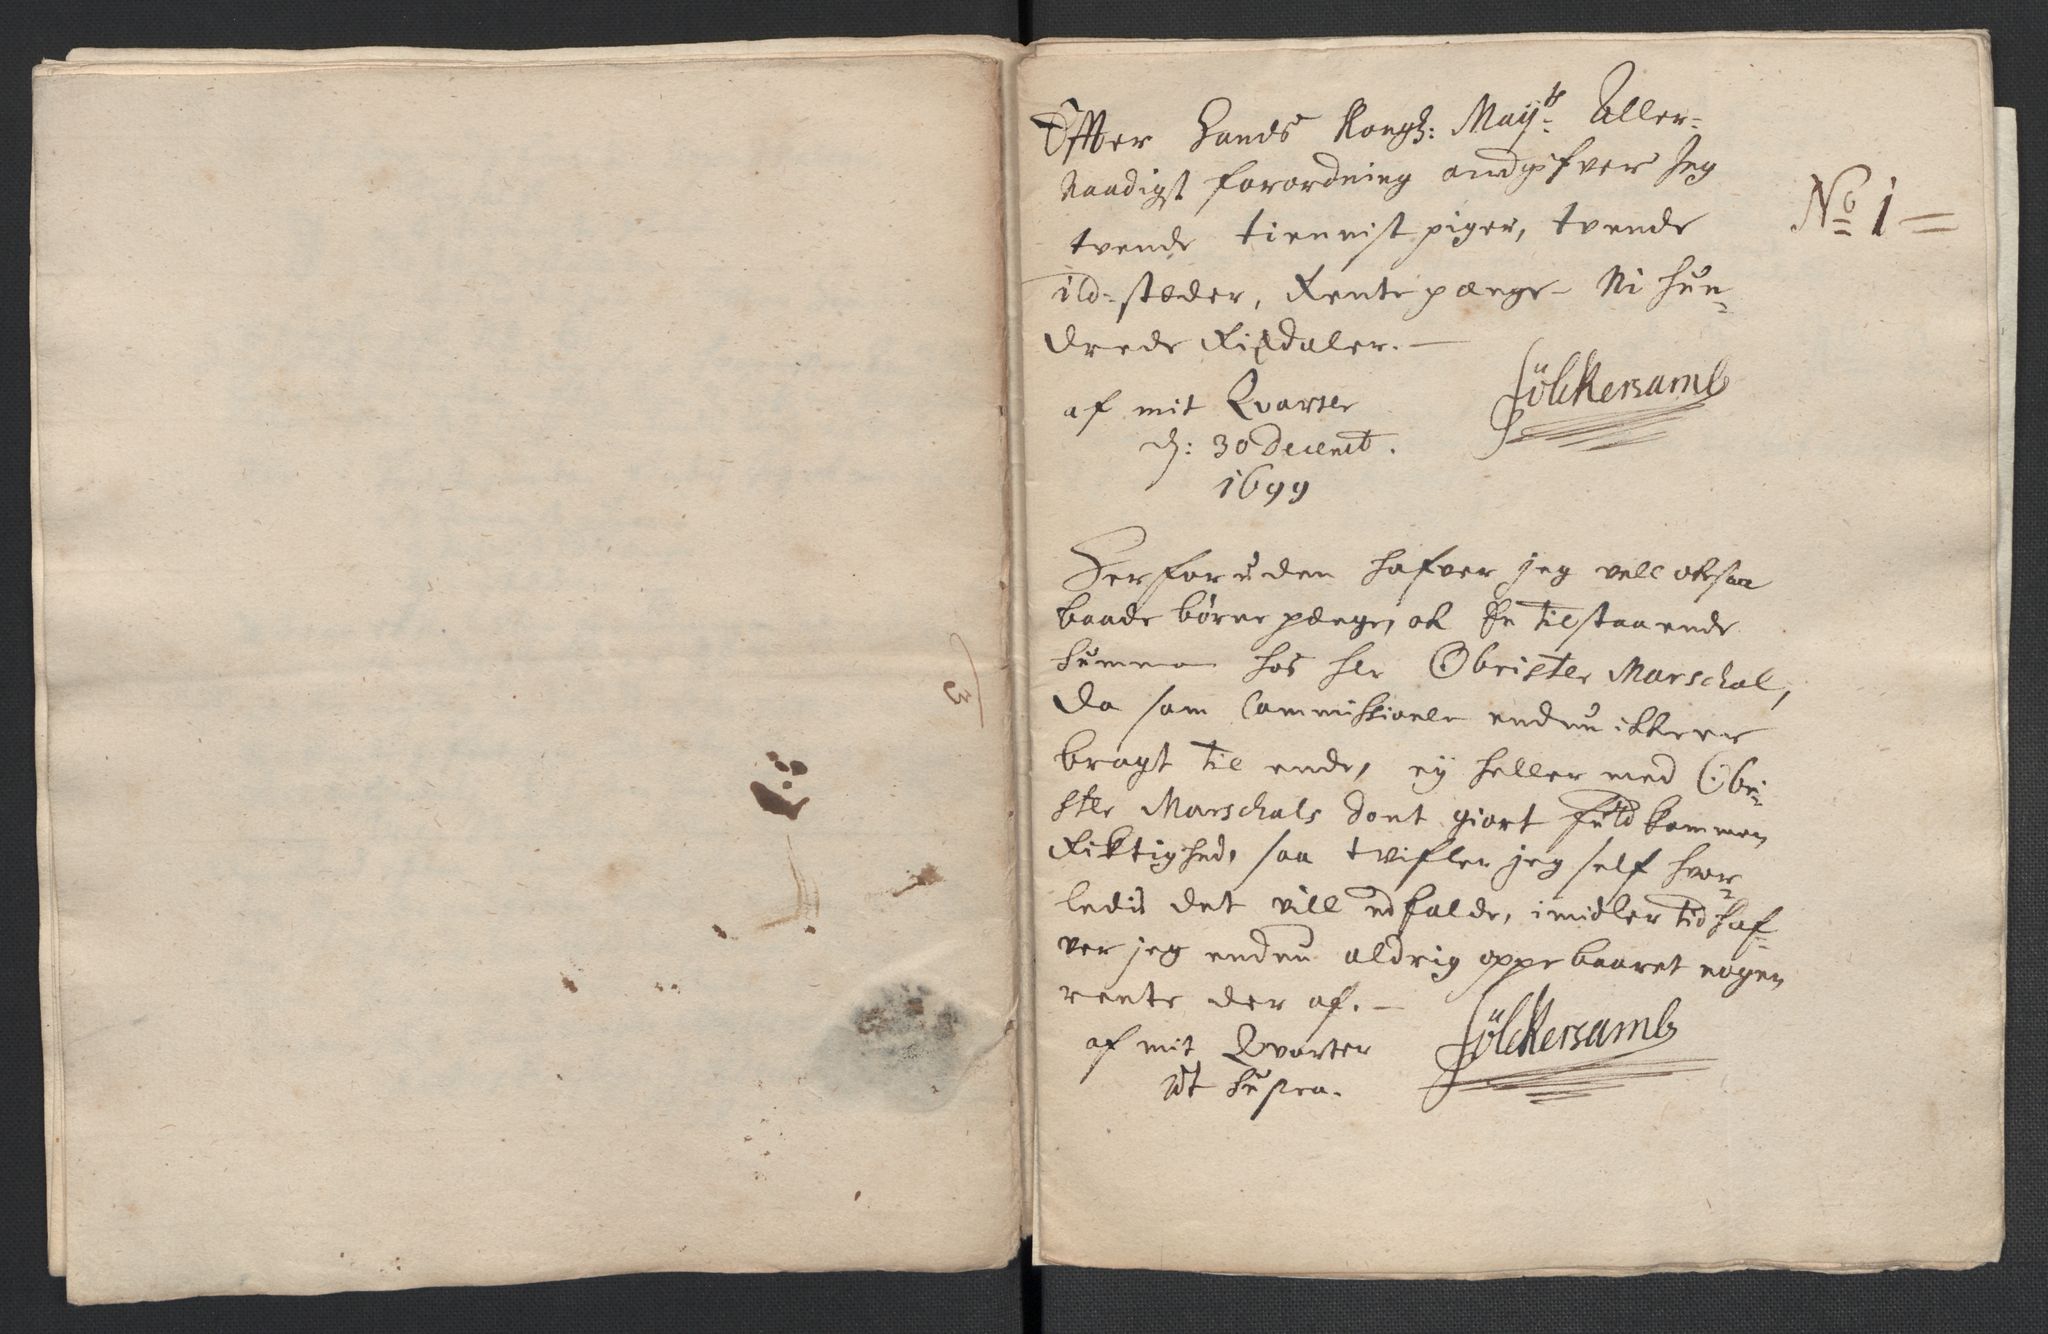 Effter Hands Kongl: Mayts Aller=
Naadigst forordning andgifver Jeg
tvende tiennist piger, tvende
ild=stæder, Rente pænge Ni hun=
drede Rixdaler.
af mit Qvarter
d: 30 Decemb.
1699
Fölckersamb
No 1
Herforuden hafver jeg vell oksaa
baade børne pænge, ok En tilstaaende
summa hos Hr Obrister Marschal,
da som Commissionen endnu ikke er
bragt til ende, ey heller med Obri=
ster Marschals dont giort fuldkommen
Riktighed, saa tvifler jeg self hvor=
ledis det vill udfalde, imidler tid haf=
ver jeg endnu aldrig oppebaaret nogen
rente der af.
af mit Qvarter
ut supra.
Fölckersamb
3